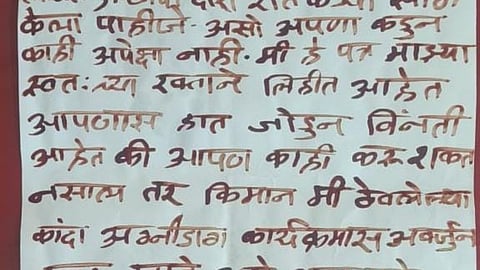 केला पाहीजे. असो अपणा कडुन
काही अपेक्षा नाही. मी हे पत्र माझ्या
स्वतः च्या रक्ताने लिहीत आहेत
आपणास हात जोडुन विनंती
आहेत की आपण काही करू शकत
नसाल तर किमान मी ठेवलेल्या
कांदा अग्नीडाग कार्यक्रमास अवर्जुन